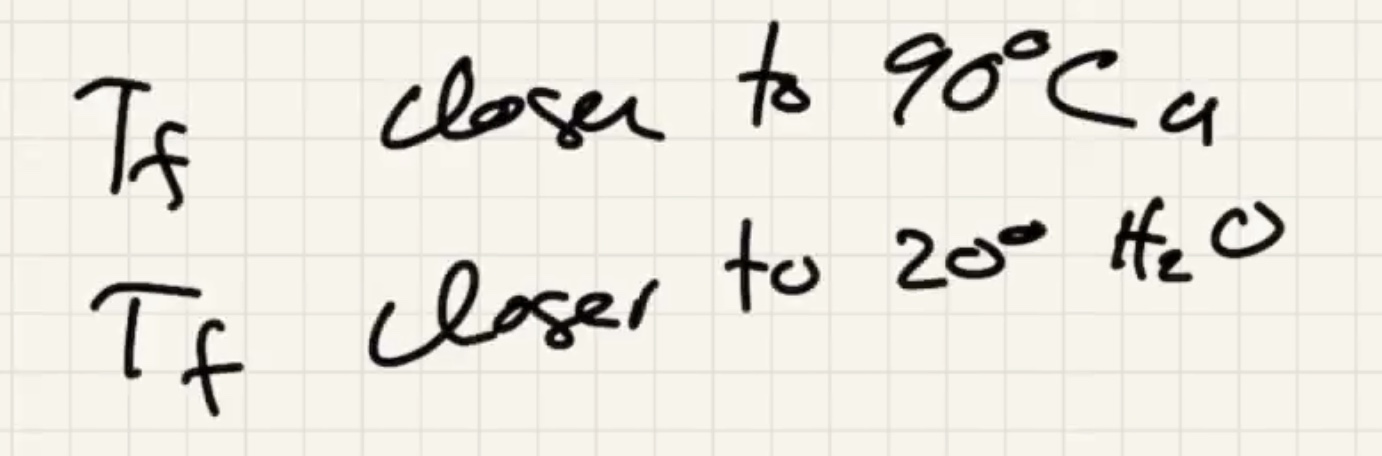 Tf closer to 90°C u
Tf closer to 20° H₂O